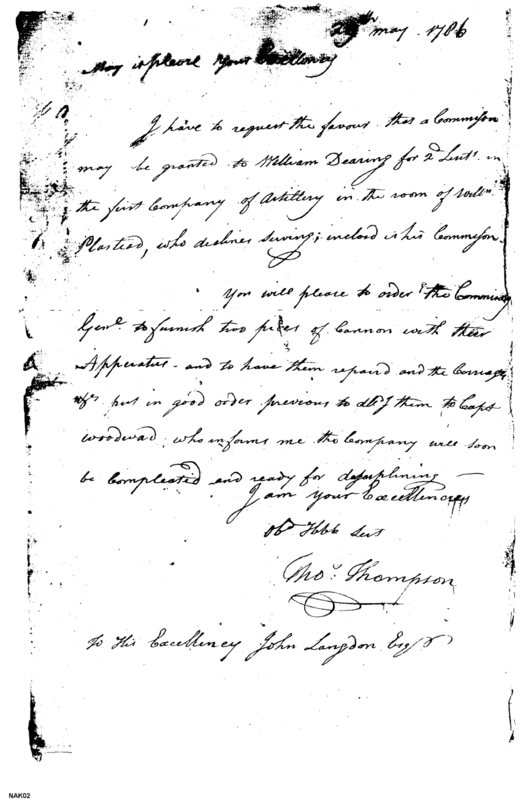 29th may. 1786
May it please Your Excellency
I have to request the favour that a Commission
may be granted to William Dearing for 2d Lieut. in
the first Company of Artillery in the room of Willm
Plastead, who declines serving; inclosd is his Commission.
You will please to order the Commissy
Genl. to furnish two pices of Cannon with their
Apperatus - and to have them repaird and the Carriages
&c put in good order previous to to Capt
woodwad, who informs me the Company will soon
be Compleated and ready for
I am your Excellencies
Obd Hbb Sert
Tho. Thompson
To His Excellency John Langdon Esqr
NAK02